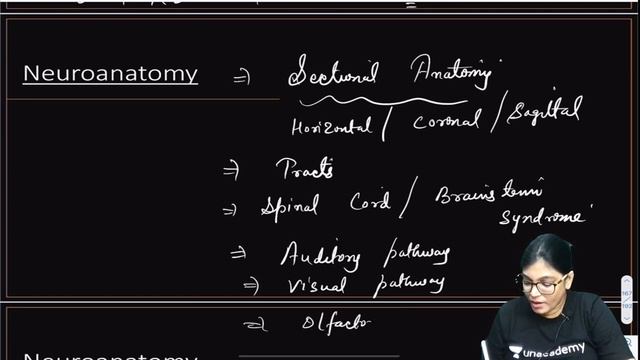 Neuroanatomy ⇒ Sectional Anatomy
Horizontal / Coronal / Sagittal
⇒ Tracts
⇒ Spinal Cord / Brainstem
Syndrome
⇒ Auditory pathway
⇒ Visual pathway
⇒ Olfacto
unacademy
Neuroanatomy